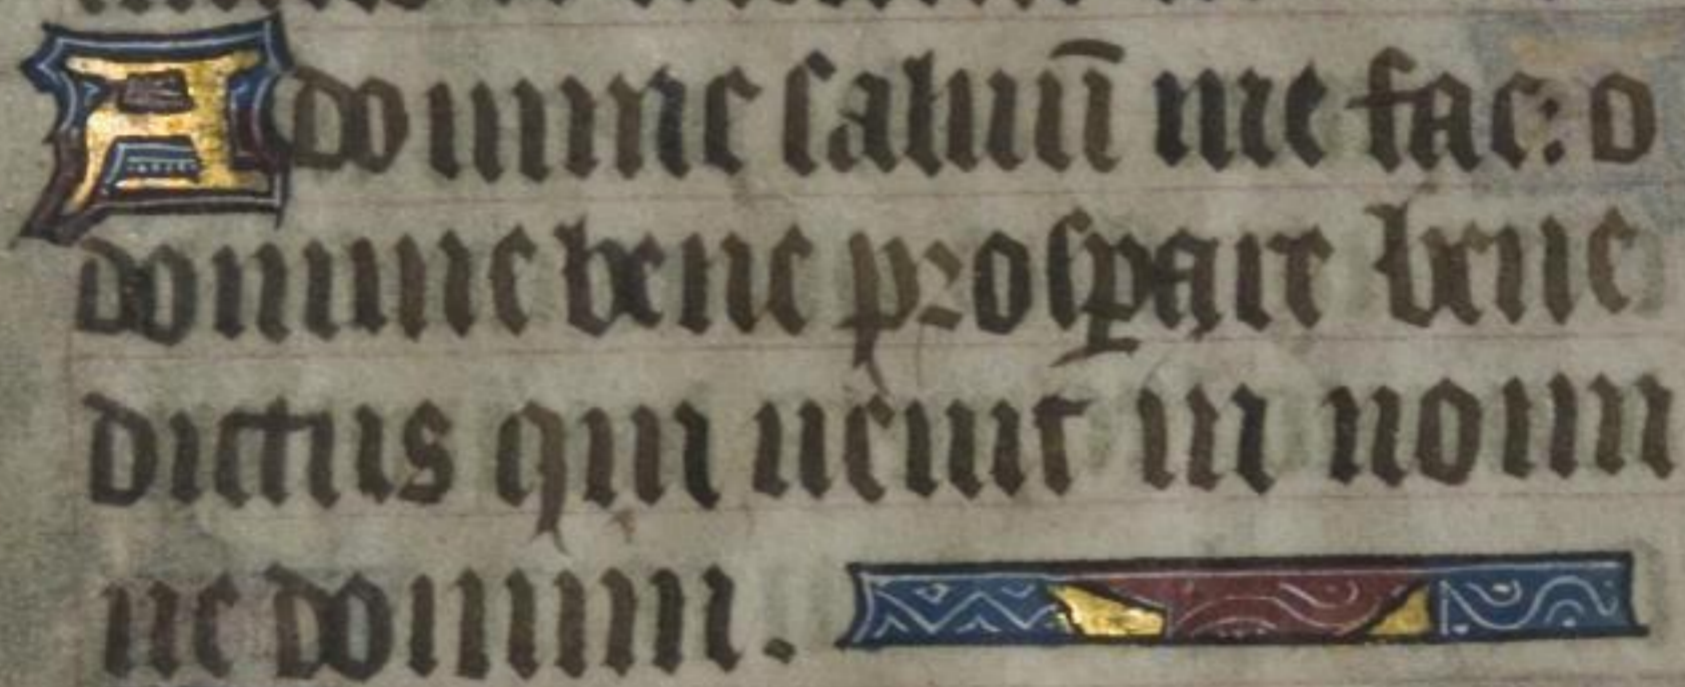 A domine saluū me fac: o
domine bene prosꝑare bene
dictus qui uenit in nomi
ne domini.